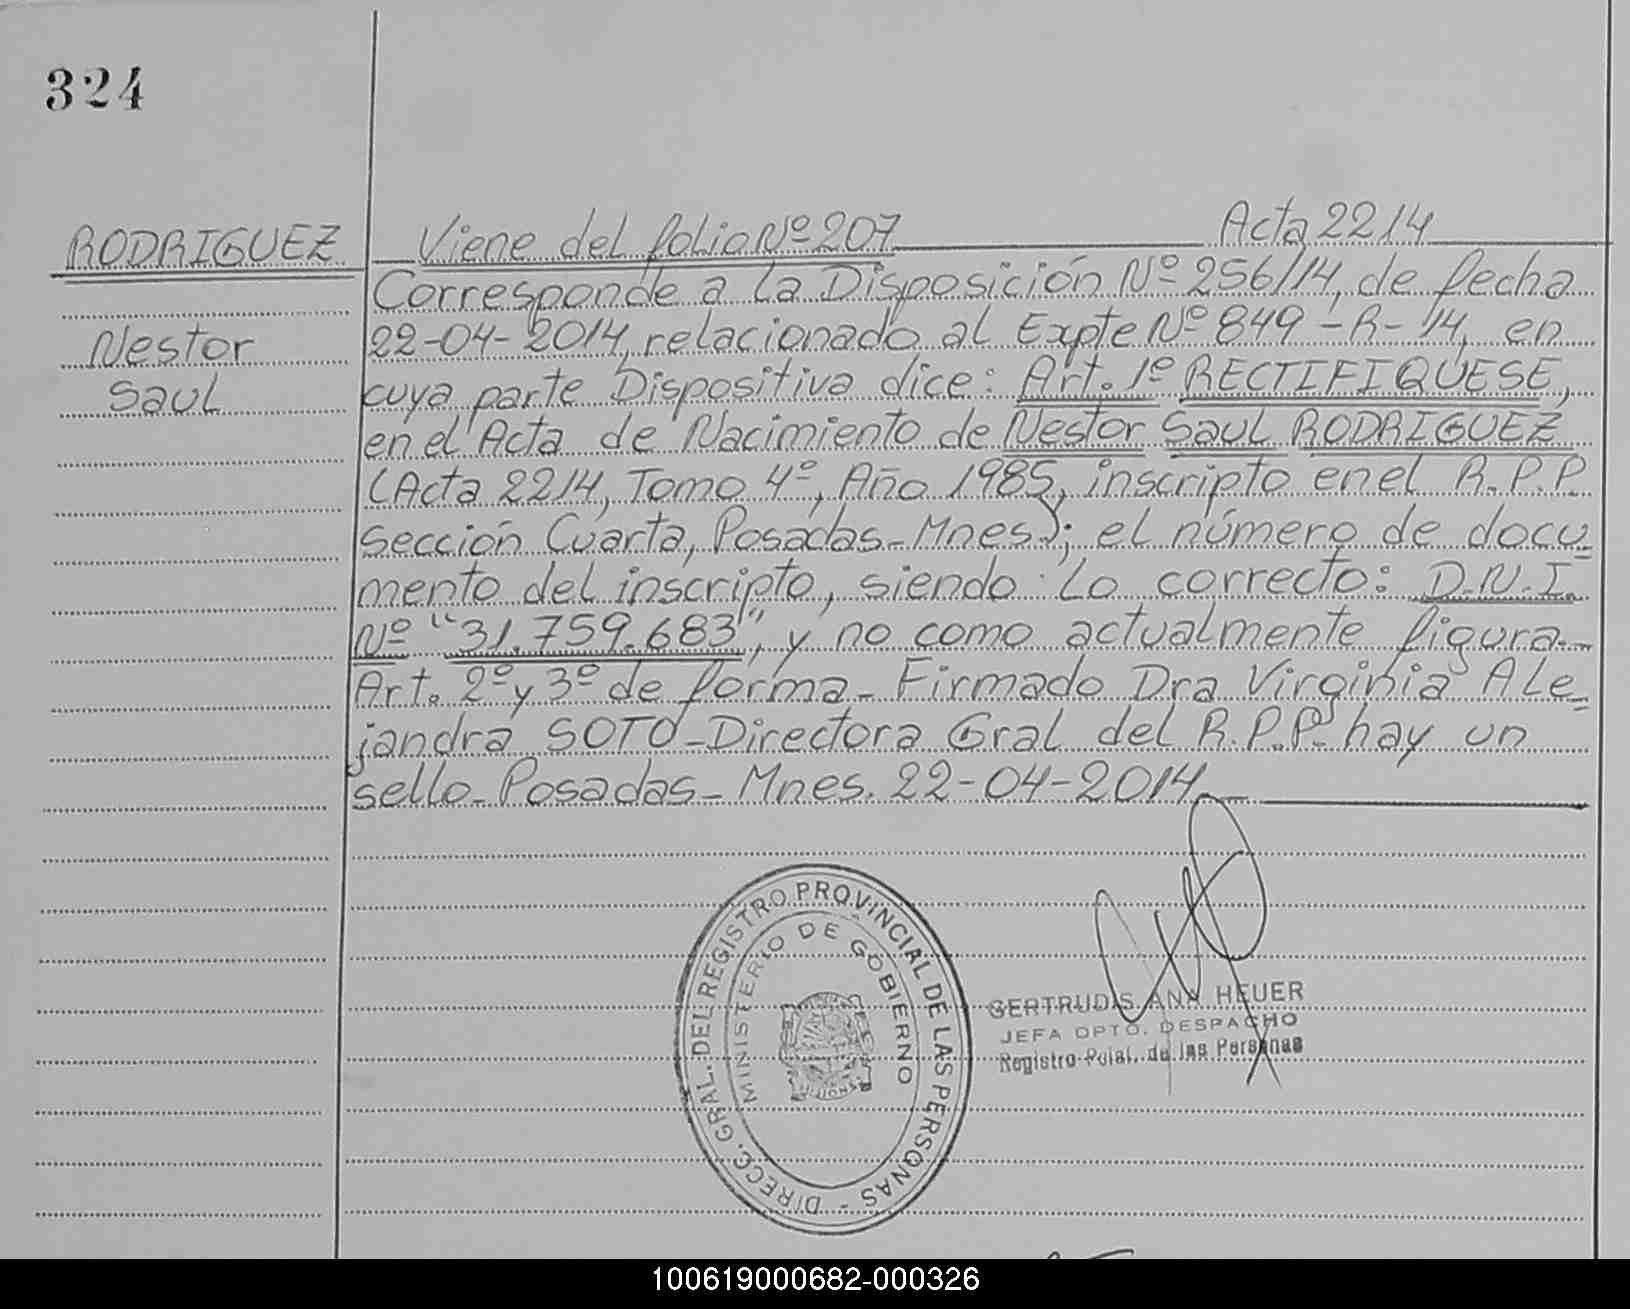 324
RODRIGUEZ
Nestor
Saul
Viene del folio Nº 207 Acta 2214
Corresponde a la Disposición Nº 256/14, de fecha
22-04-2014, relacionado al Expte Nº 849-R-14, en
cuya parte Dispositiva dice: Art. 1º RECTIFIQUESE,
en el Acta de Nacimiento de Nestor Saul RODRIGUEZ
(Acta 2214, Tomo 4º, Año 1985, inscripto en el R.P.P.
Sección Cuarta, Posadas-Mnes.); el número de docu=
mento del inscripto, siendo lo correcto: D.N.I.
Nº "31.759.683", y no como actualmente figura.-
Art. 2º y 3º de forma- Firmado Dra Virginia Ale=
jandra SOTO-Directora Gral del R.P.P. hay un
sello- Posadas-Mnes. 22-04-2014
DIRECC. GRAL. DEL REGISTRO PROVINCIAL DE LAS PERSONAS -
MINISTERIO DE GOBIERNO
GERTRUDIS ANA HEUER
JEFA DPTO. DESPACHO
Registro Pcial. de las Personas
100619000682-000326